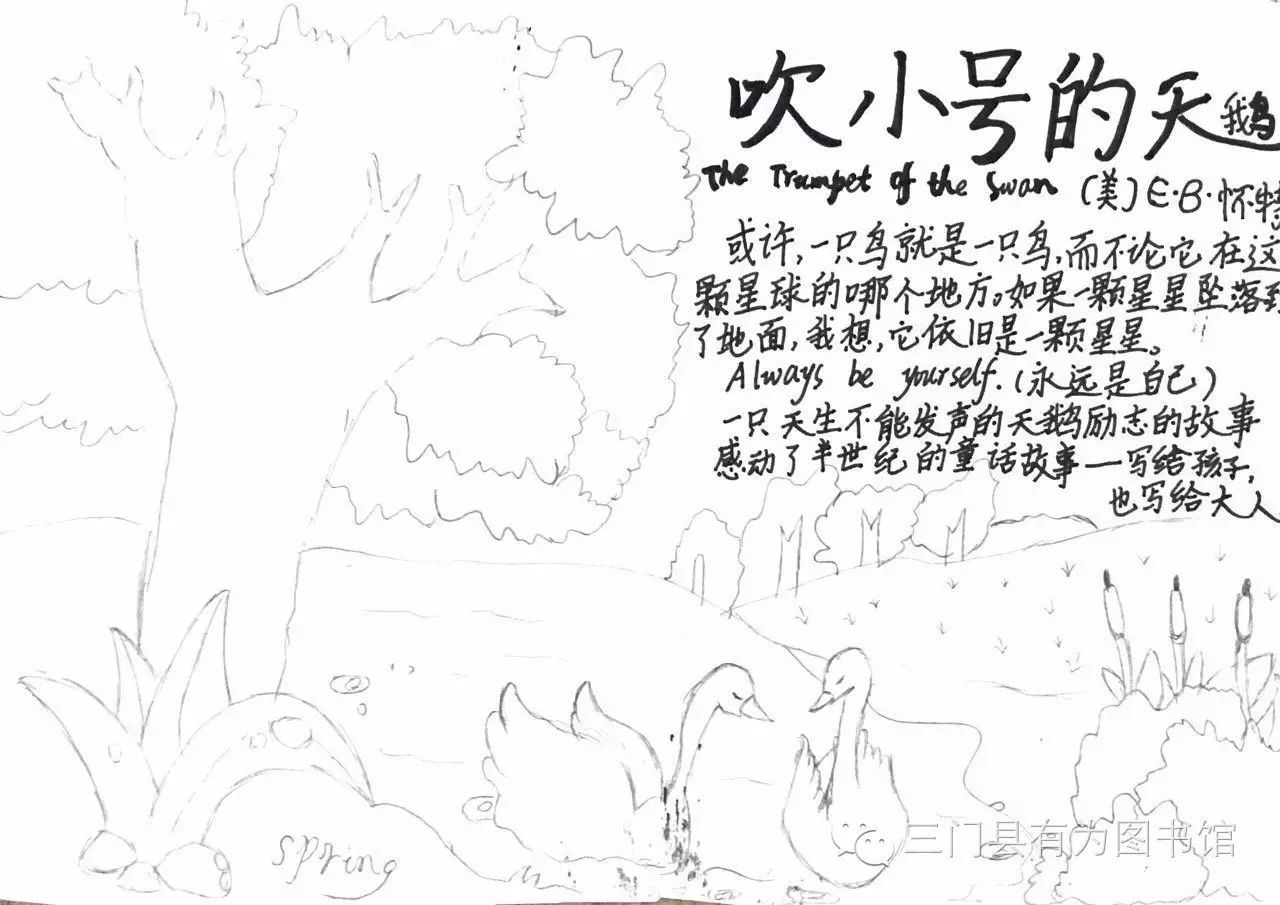 吹小号的天鹅
The Trumpet of the Swan (美)E·B·怀特
或许，一只鸟就是一只鸟，而不论它在这
颗星球的哪个地方。如果一颗星星坠落到
了地面，我想，它依旧是一颗星星。
Always be yourself.(永远是自己)
一只天生不能发声的天鹅励志的故事
感动了半世纪的童话故事—写给孩子，
也写给大人
spring
三门县有为图书馆